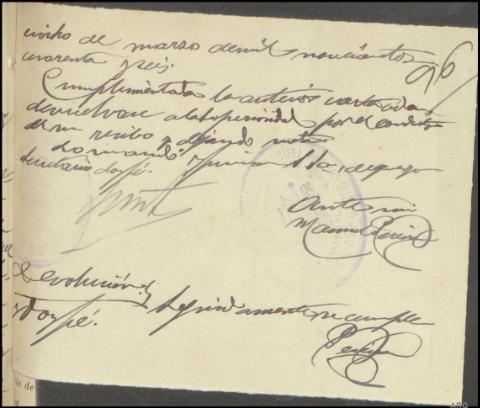 ciocho de marzo de mil novecientos
cuarenta y seis.
96
Cumplimentada la anterior carta orden
devuelvase a la Superioridad por el conducto
de su recibo y dejando nota
Lo mandó y firma S.Sª de que yo
Secretario doy fé.
Ante mi
Manuel
Devolución) Seguidamente se cumple
y doy fé.